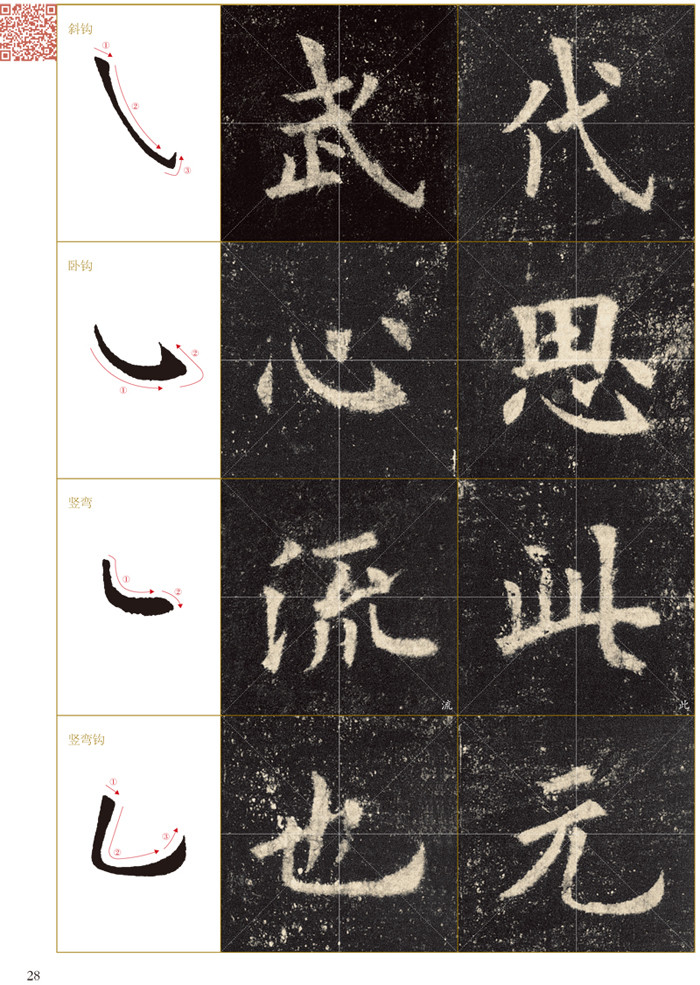 斜钩
①
②
③
武 代
卧钩
②
①
心 思
竖弯
①
②
流 此
流 此
竖弯钩
①
③
②
也 元
28